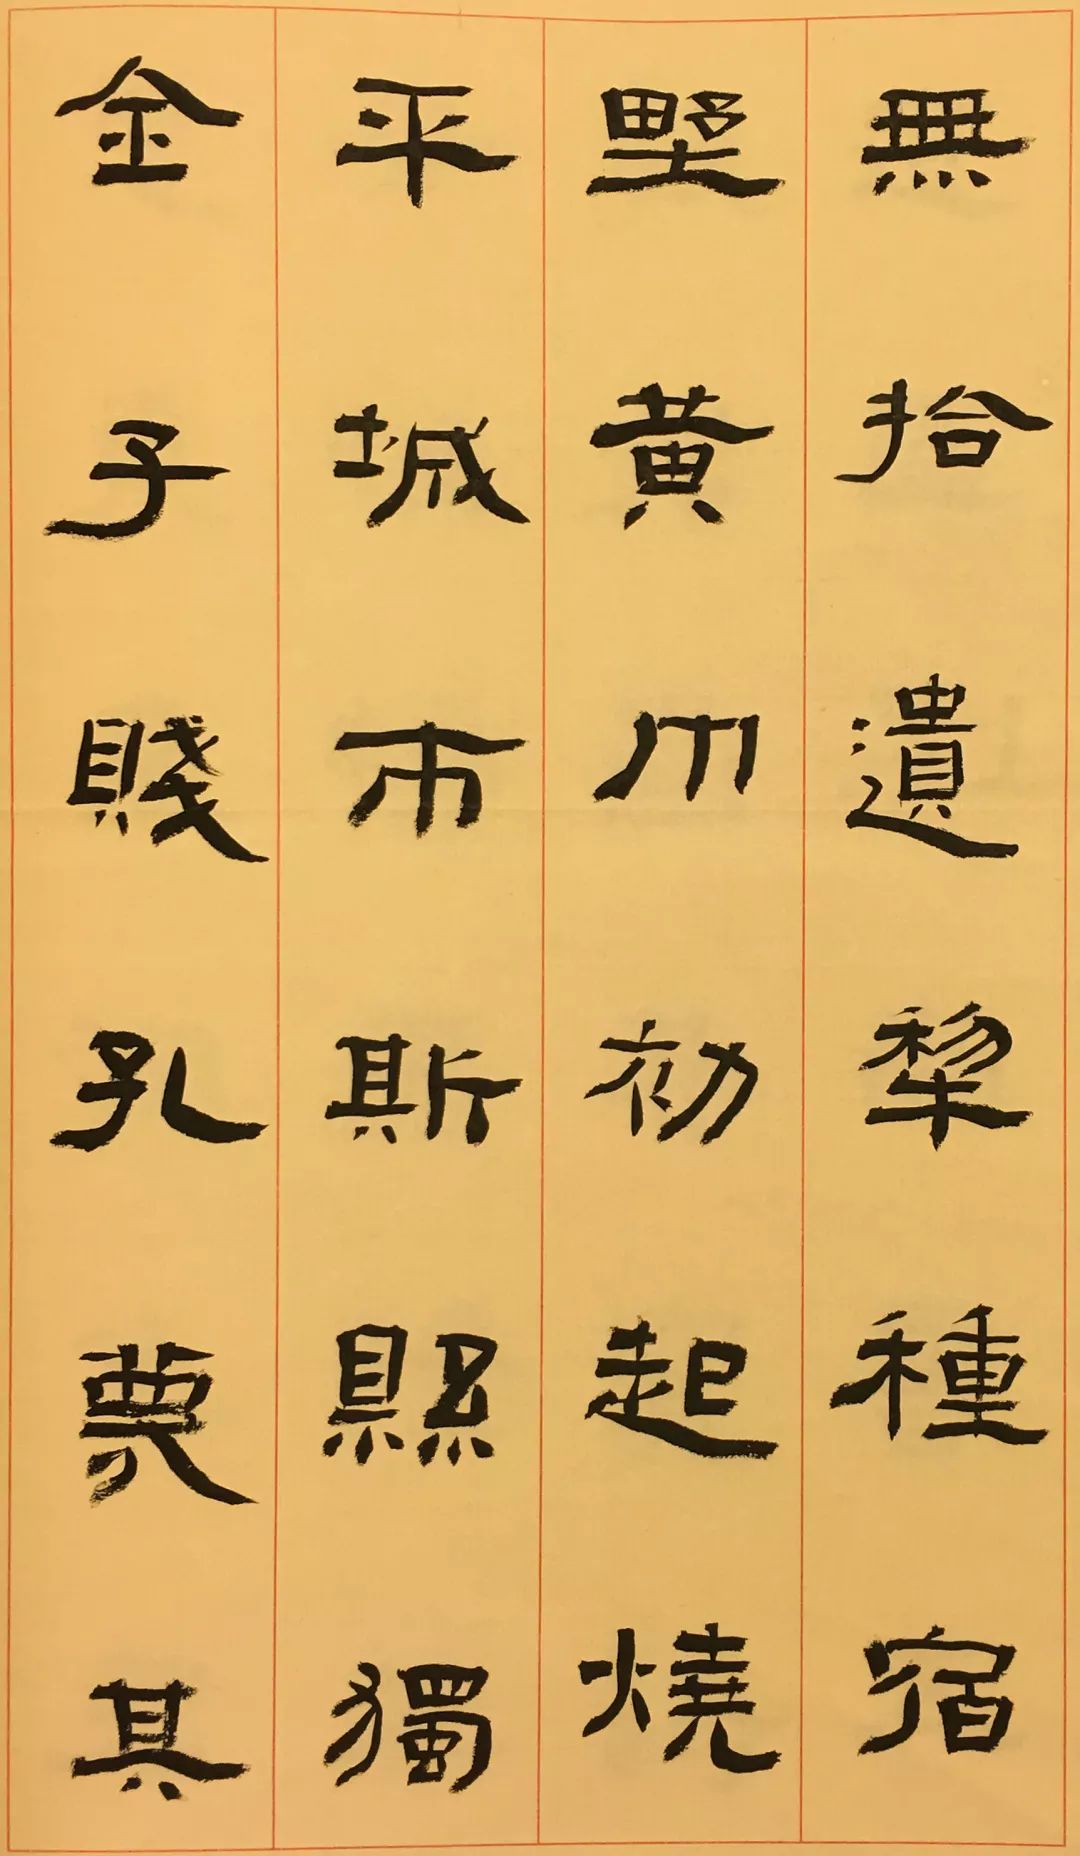 無拾遺犁種宿
野黃巾初起燒
平城市斯縣獨
全子賤孔蔑其